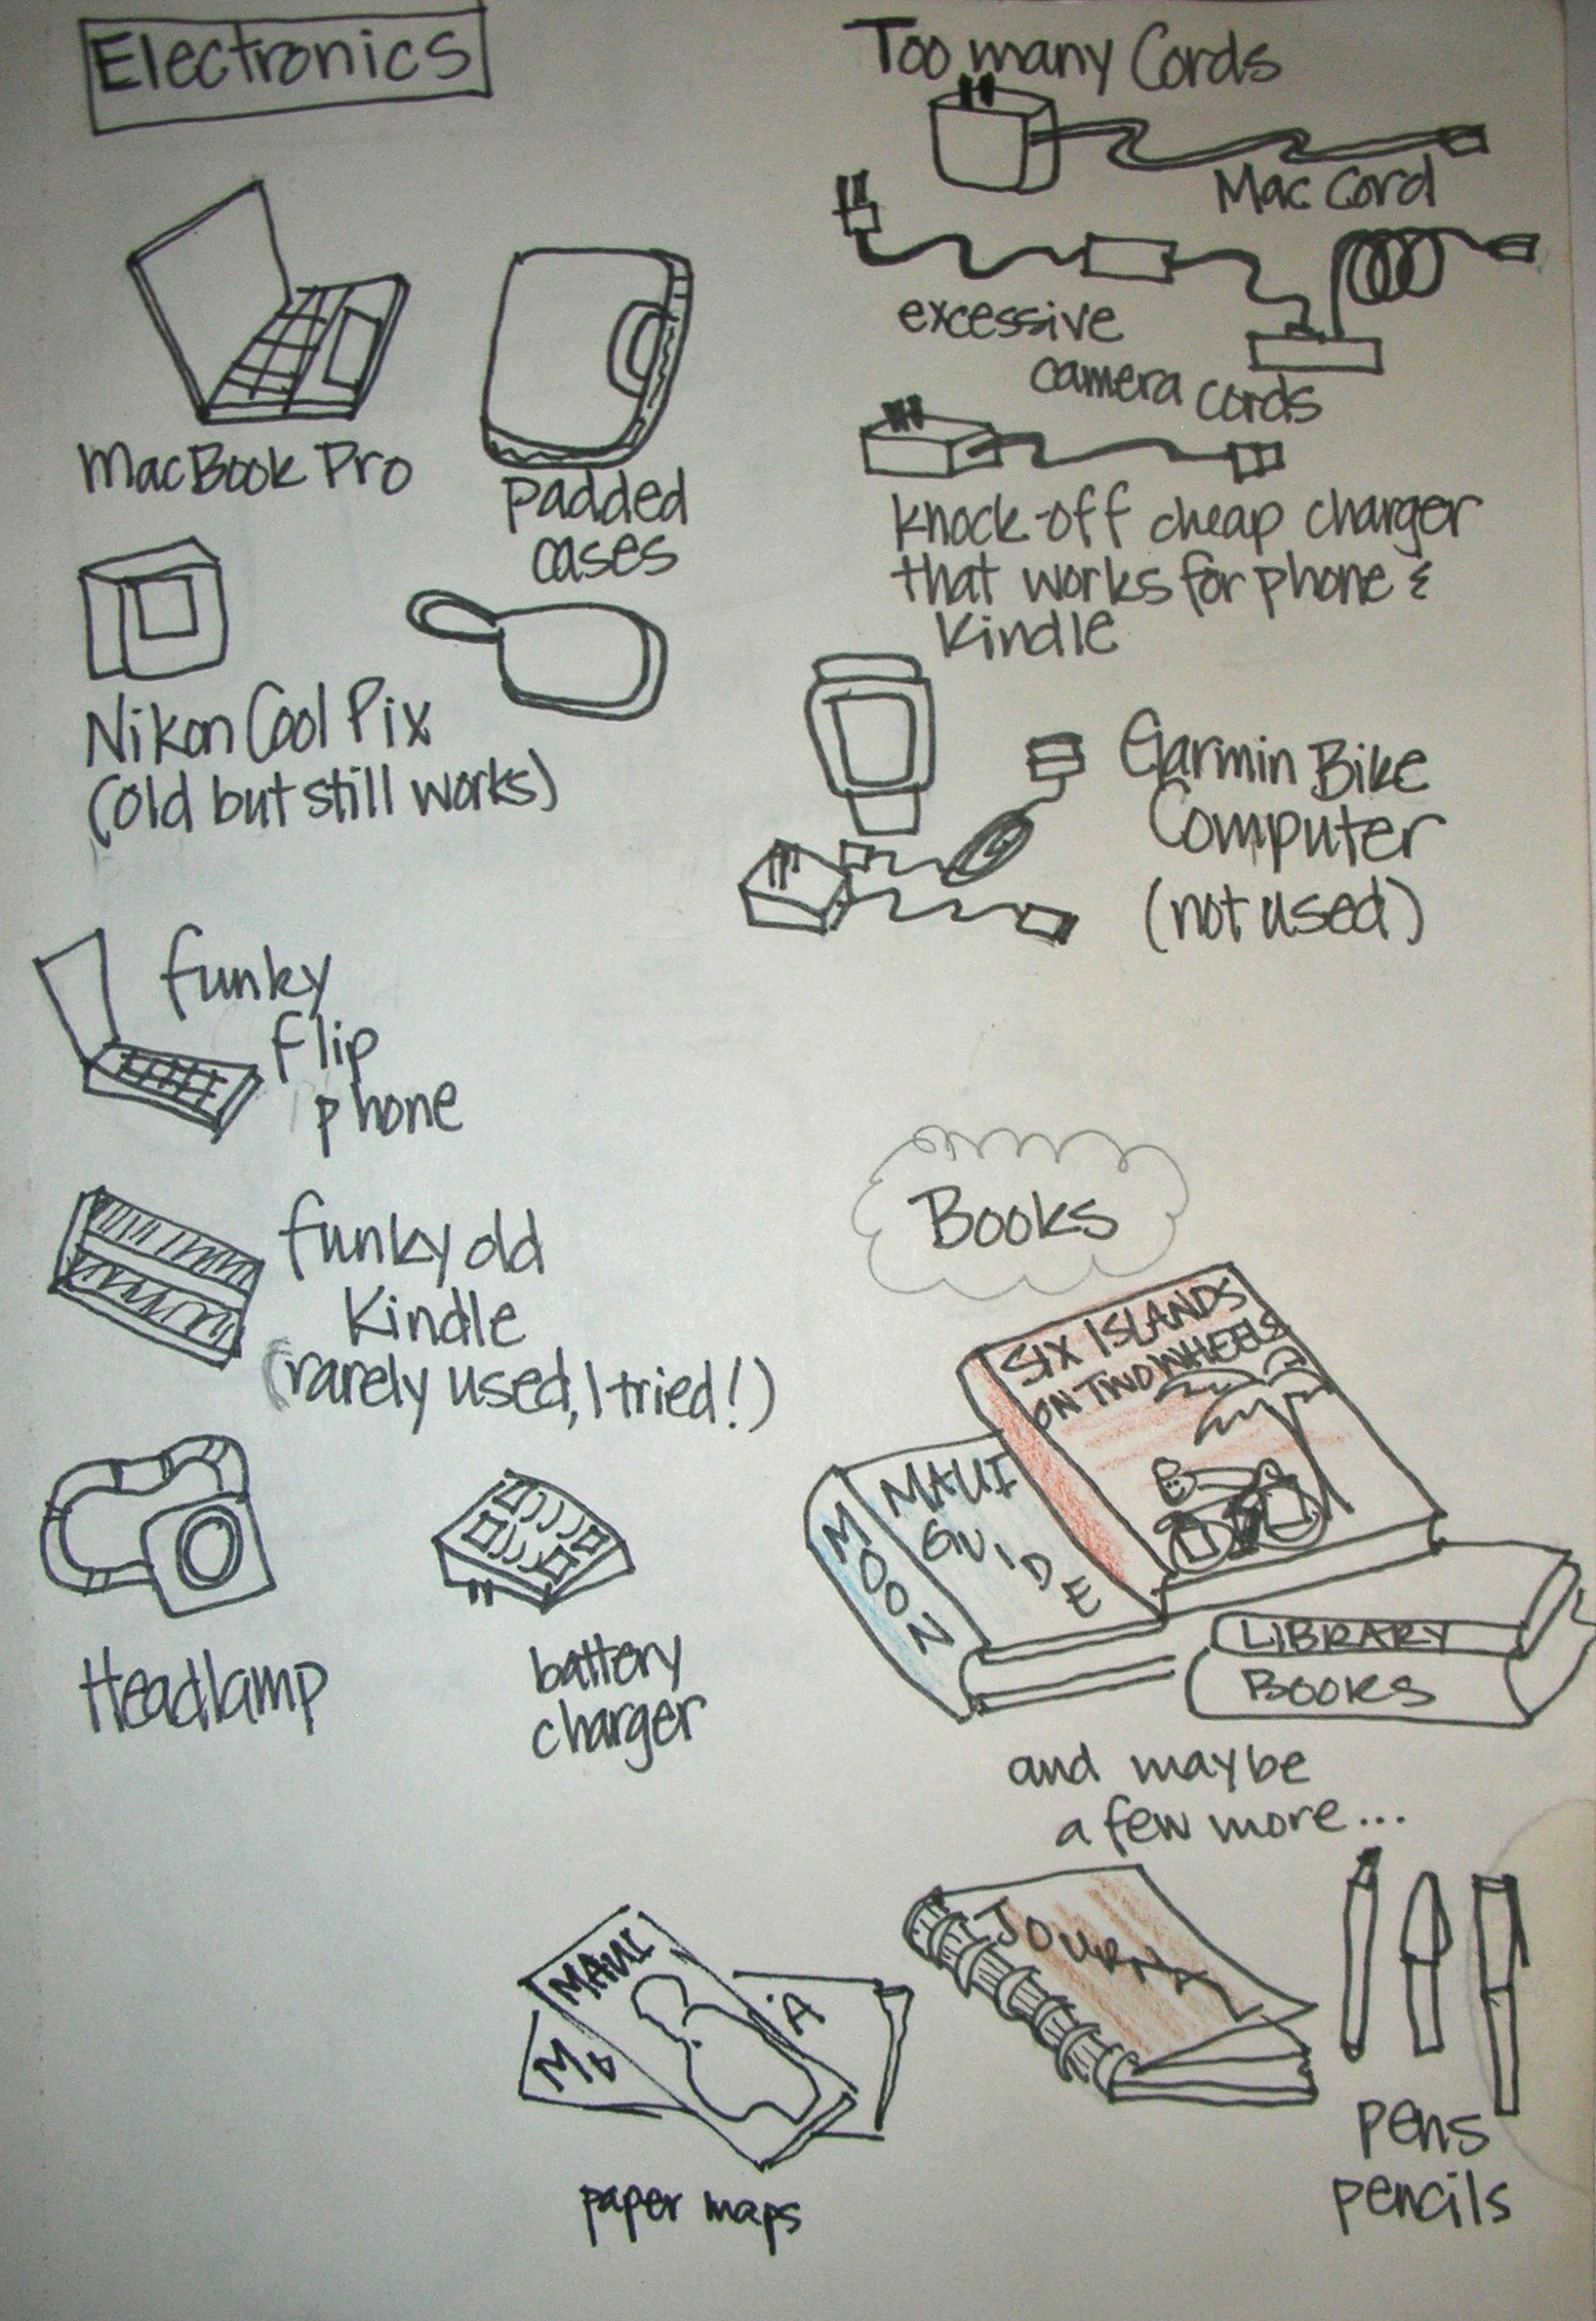 Electronics
MacBook Pro
padded
cases
Nikon Cool Pix
(old but still works)
funky
flip
phone
funky old
Kindle
(rarely used, I tried!)
Headlamp
battery
charger
Too many Cords
Mac Cord
excessive
camera cords
knock-off cheap charger
that works for phone &
Kindle
Garmin Bike
Computer
(not used)
Books
SIX ISLANDS
ON TWO WHEELS
MOON
MAUI
GUIDE
LIBRARY
BOOKS
and maybe
a few more...
MAUI
JOURNAL
pens
pencils
paper maps